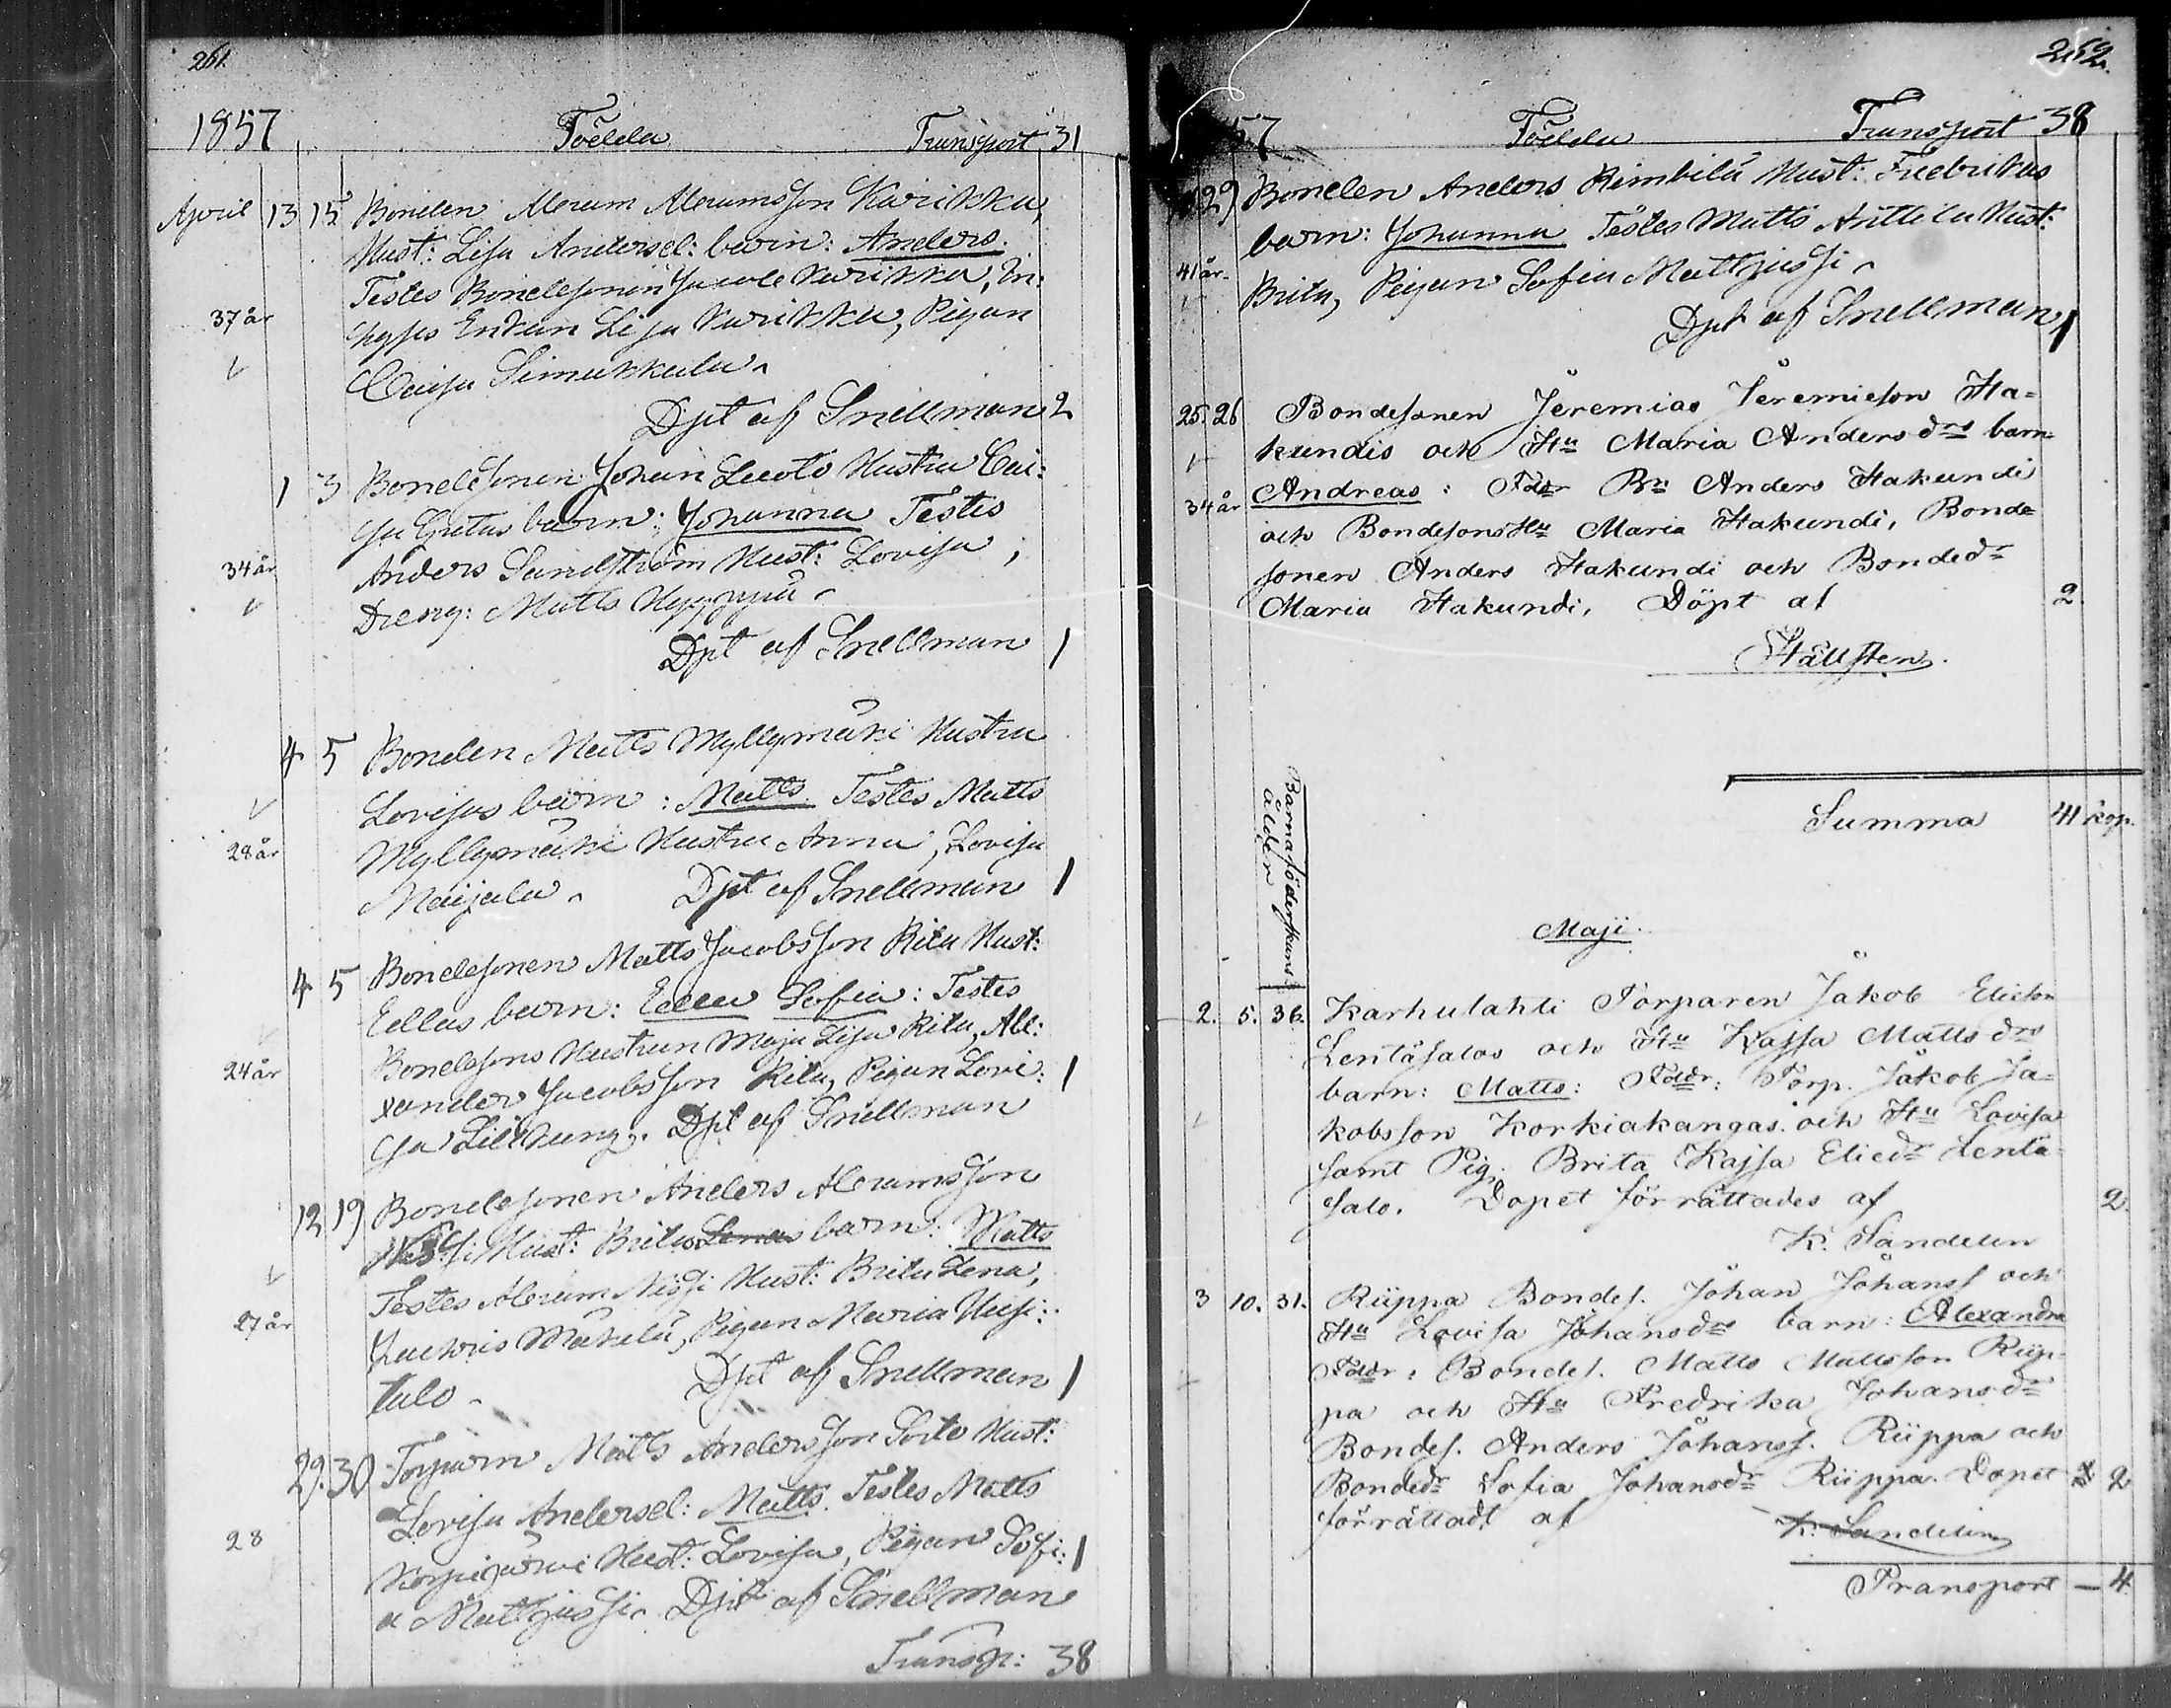 261.
1857 Födda Transport 31
April 13 15 Bonden Abram Abramsson Karikka,
Hust: Lisa Andersd: barn: Anders.
Testes Bondesonen Jacob Karikka, In:
37 år hyses Enkan Lisa Karikka, Pigan
Caisa Simukkala.
Dpt af Snellman 2
1 3 Bondesonen Johan Luoto Hustru Cai:
sa Gretas barn: Johanna Testes
34 år Anders Sundström Hust: Lovisa,
Dreng: Matts
Dpt af Snellman 1
4 5 Bonden Matts Myllymäki Hustru
Lovisas barn: Matts. Testes Matts
28 år Myllymäki Hustru Anna, Lovisa
Maijala. Dpt af Snellman 1
4 5 Bondesonen Matts Jacobsson Rita Hust:
Eellas barn: Eella Sofia: Testes
Bondesons Hustrun Maja Lisa Rita, All:
24 år xander Jacobsson Rita, Pigan Lovi: 1
sa Lillkung. Dpt af Snellman
12 19 Bondesonen Anders Abramsson
Nissi Hust: Brita Lenas barn: Matts
Testes Abram Nissi Hust: Brita Lena,
27 år Zachris Mäkelä, Pigan Maria Uusi:
talo. Dpt af Snellman 1
29. 30 Torparn Matts Andersson Sorto Hust:
Lovisa Andersd: Matts. Testes Matts
28 Korpijärvi Hust: Lovisa, Pigan Sofi: 1
a Mattjussi. Dpt af Snellman
Transp: 38
262.
57 Födda Transport 38
29 Bonden Anders Rimbilä Hust: Fredrikas
barn: Johanna Testes Matts Anttila Hust:
41 år. Brita, Pigan Sofia Mattjussi.
Dpt af Snellman 1
25. 26 Bondesonen Jeremias Jeremieson Ha-
kundis och Hu Maria Andersdrs barn
34 år Andreas: Fddr Bn Anders Hakundi
och BondesonsHu Maria Hakundi, Bonde
sonen Anders Hakundi och Bondedr
Maria Hakundi, Döpt af 2.
Hällsten.
Summa 41 kop.
Barnaföderskans
ålder
Maji.
2. 5. 36. Karhulahti Torparen Jakob Elieson
Lentäsalos och Hu Kajsa Mattsdrs
barn: Matts: Fddr: Torp. Jakob Ja-
kobsson Korkiakangas och Hu Lovisa
samt Pig. Brita Kajsa Eliedr Lentä-
salo. Dopet förrättades af 2.
K. Sandelin
3 10. 31. Riippa Bondes. Johan Johanss och
Hu Lovisa Johansdrs barn: Alexandra
Fddr: Bondes. Matts Mattsson Riip-
pa och Hu Fredrika Johansdr
Bondes. Anders Johanss. Riippa och
Bondedr Sofia Johansdr Riippa. Dopet 2
förrättadt af K. Sandelin
Transport — 4.